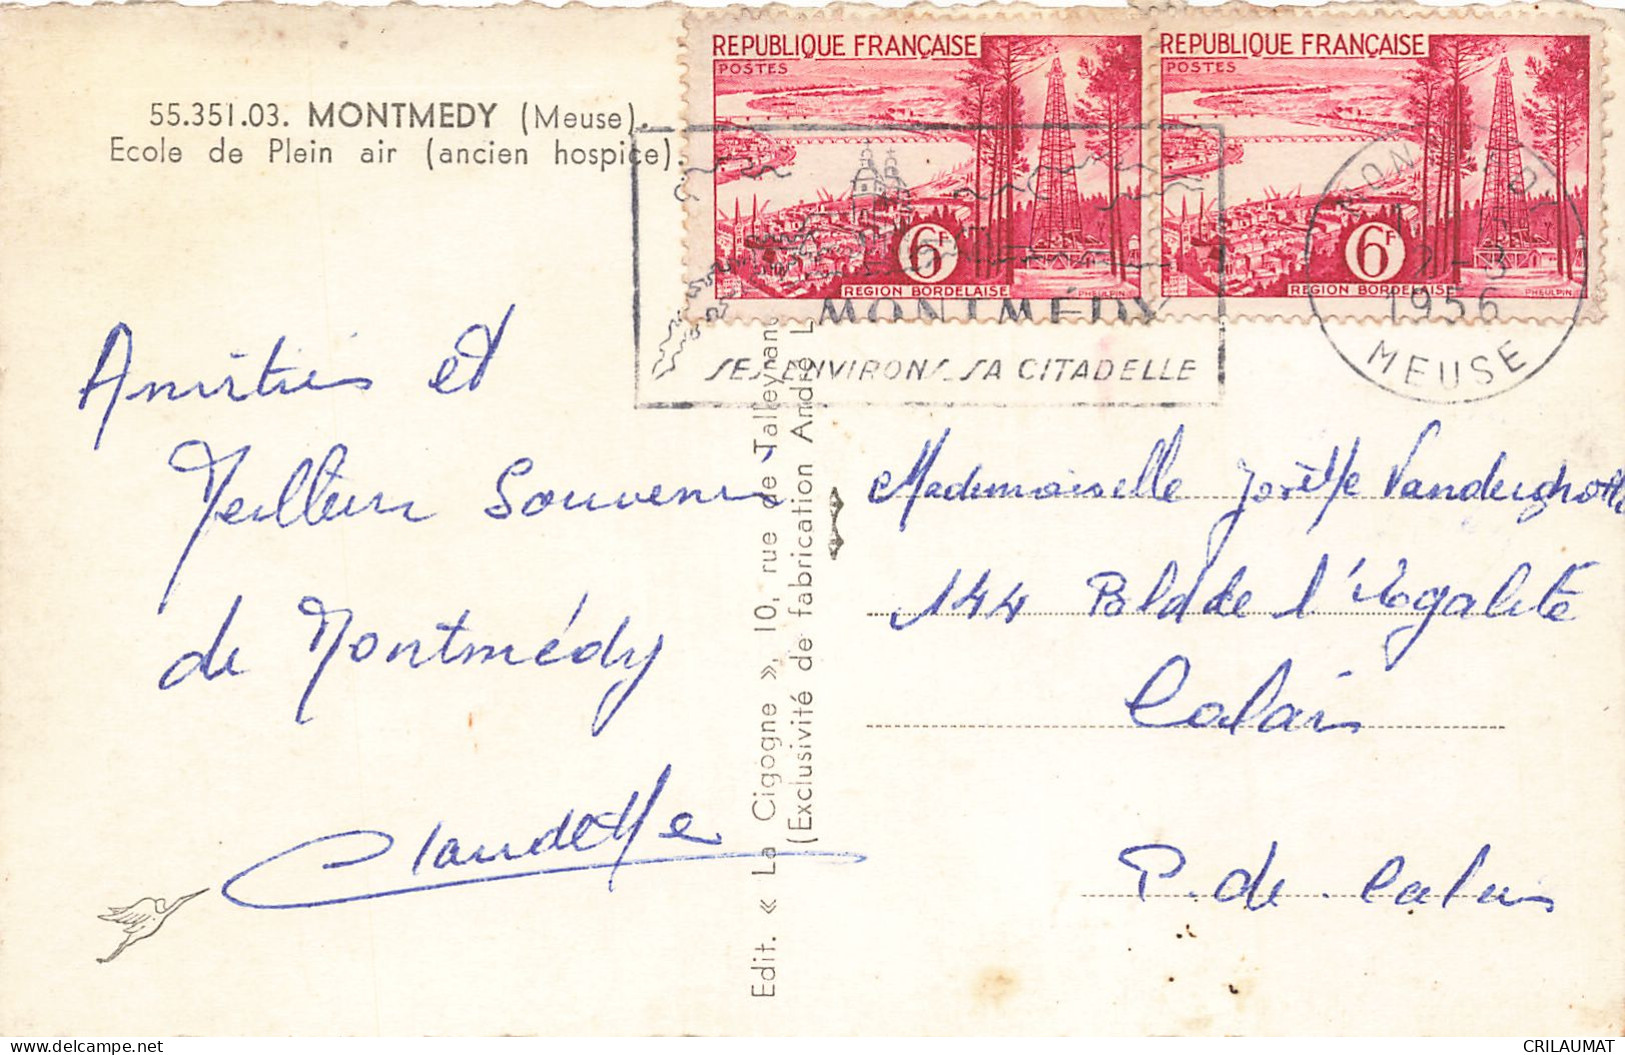 55.351.03. MONTMEDY (Meuse).
Ecole de Plein air (ancien hospice).
REPUBLIQUE FRANÇAISE
POSTES
6F
REGION BORDELAISE
PHEULPIN
REPUBLIQUE FRANÇAISE
POSTES
6F
REGION BORDELAISE
PHEULPIN
MONTMÉDY
SES ENVIRONS SA CITADELLE
1956
MEUSE
Amitiés et
Meilleurs Souvenirs
de Montmédy
Claudette
Edit. « La Cigogne », 10, rue de Talleyrand
(Exclusivité de fabrication André L
Mademoiselle Josette
144 Bld de l'Egalité
Calais
P. de Calais
CRILAUMAT